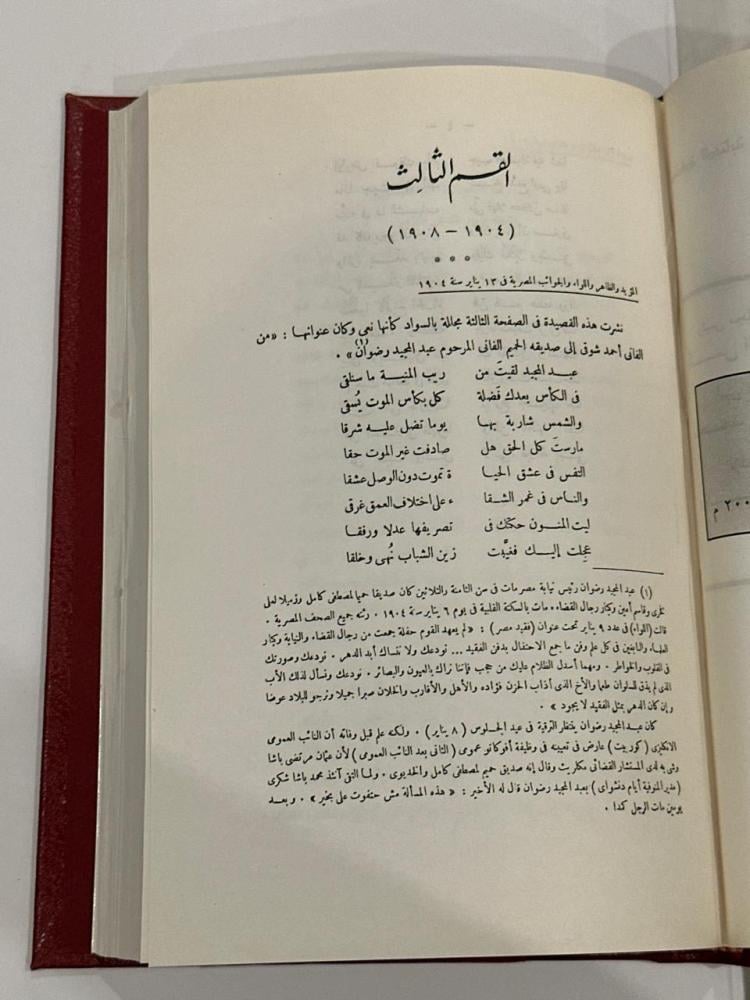 القسم الثالث
(١٩٠٤ - ١٩٠٨)
* * *
المؤيد والظاهر واللواء والجوائب المصرية فى ١٣ يناير سنة ١٩٠٤
نشرت هذه القصيدة فى الصفحة الثالثة مجللة بالسواد كأنها نعى وكان عنوانها : « من
الفانى أحمد شوقى إلى صديقه الحميم الفانى المرحوم عبد المجيد رضوان(١) » .
عبد المجيد لقيتَ من ريب المنية ما سنلقى
فى الكأس بعدك فَضلة كل بكأس الموت يُسقى
والشمس شاربة بها يوما تضل عليه شرقا
مارستَ كل الحق هل صادفت غير الموت حقا
النفس فى عشق الحيا ة تموت دون الوصل عشقا
والناس فى غمر الشقا ء على اختلاف العمق غرقى
ليت المنون حكتك فى تصريفها عدلا ورفقا
عجلت إليك فغيَّبت زين الشباب نُهى وخلقا
(١) عبد المجيد رضوان رئيس نيابة مصر مات فى سن الثامنة والثلاثين كان صديقا حميا لمصطفى كامل وزميلا لعلى
فكرى وقاسم أمين وكبار رجال القضاء . مات بالسكتة القلبية فى يوم ٦ يناير سنة ١٩٠٤ . رثته جميع الصحف المصرية .
قالت (اللواء) فى عدد ٩ يناير تحت عنوان (فقيد مصر) : « لم يعهد القوم حفلة جمعت من رجال القضاء والنيابة وكبار
العلماء والنابغين فى كل علم وفن ما جمع الاحتفال بدفن الفقيد ... نودعك ولا ننساك أبد الدهر . نودعك وصورتك
فى القلوب والخواطر . ومهما أسدل الظلام عليك من حجب فإننا نراك بالعيون والبصائر . نودعك ونسأل لذلك الأب
الذى لم يذق للسلوان طعما والأخ الذى أذاب الحزن فؤاده والأهل والأقارب والخلان صبرا جميلا ونرجو للبلاد عوضا
وإن كان الدهر بمثل الفقيد لا يجود » .
كان عبد المجيد رضوان ينتظر الترقية فى عيد الجلوس ( ٨ يناير ) . ولكنه علم قبل وفاته أن النائب العمومى
الانكليزى ( كوربيت ) عارض فى تعيينه فى وظيفة أفوكاتو عمومى ( الثانى بعد النائب العمومى ) لأن عثمان مرتضى باشا
وشى به لدى المستشار القضائى مكلريث وقال إنه صديق حميم لمصطفى كامل والخديوى . ولما التقى آنئذ محمد باشا شكرى
(مدير المنوفية أيام دنشواى ) بعبد المجيد رضوان قال له الأخير : « هذه المسألة مش حتفوت على بخير » . وبعد
يومين مات الرجل كمدا .